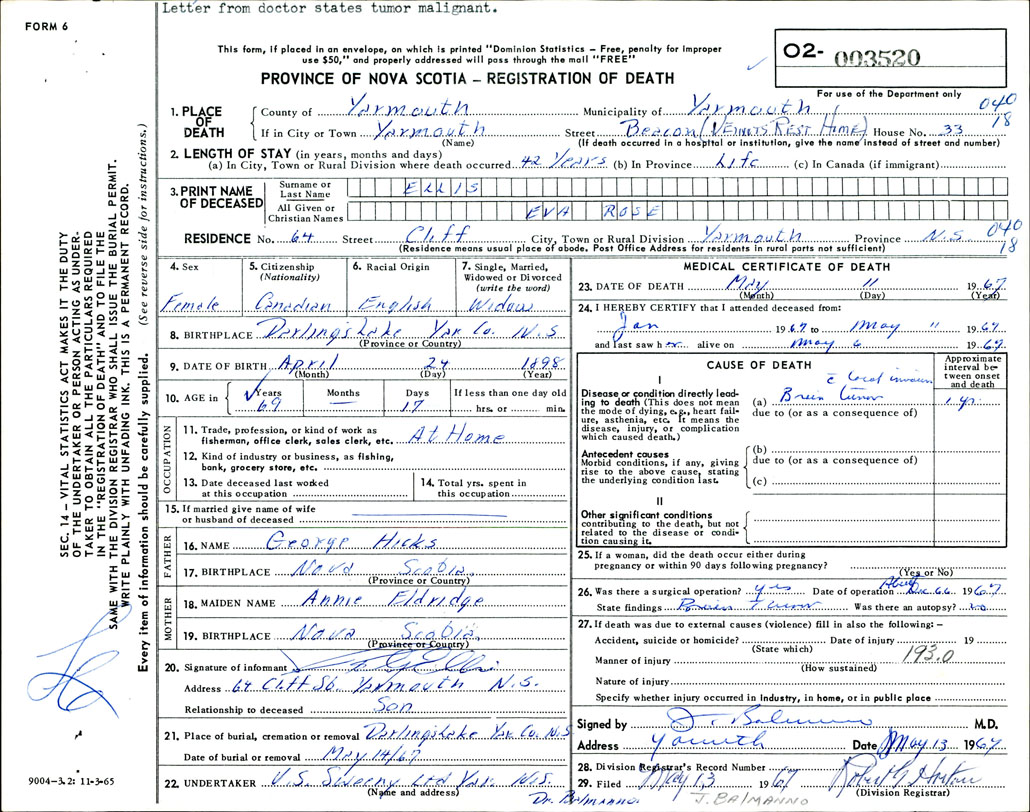 Letter from doctor states tumor malignant.
FORM 6
This form, if placed in an envelope, on which is printed "Dominion Statistics – Free, penalty for improper
use $50," and properly addressed will pass through the mail "FREE"
O2- 003520
PROVINCE OF NOVA SCOTIA – REGISTRATION OF DEATH
For use of the Department only
1. PLACE OF DEATH
County of Yarmouth Municipality of Yarmouth 040
If in City or Town Yarmouth Street Beacon House No. 33 18
(Name) (If death occurred in a hospital or institution, give the name instead of street and number)
2. LENGTH OF STAY (in years, months and days)
(a) In City, Town or Rural Division where death occurred 42 Years (b) In Province Life (c) In Canada (if immigrant)
3. PRINT NAME OF DECEASED
Surname or Last Name ELLIS
All Given or Christian Names EVA ROSE
RESIDENCE No. 64 Street Cliff City, Town or Rural Division Yarmouth Province N.S 040
(Residence means usual place of abode. Post Office Address for residents in rural parts not sufficient) 18
4. Sex
Female
5. Citizenship (Nationality)
Canadian
6. Racial Origin
English
7. Single, Married, Widowed or Divorced (write the word)
Widow
8. BIRTHPLACE Darling's Lake Yar. Co. N.S
(Province or Country)
9. DATE OF BIRTH April 24 1898
(Month) (Day) (Year)
10. AGE in
Years Months Days If less than one day old
69 — 17 hrs. or min.
OCCUPATION
11. Trade, profession, or kind of work as
fisherman, office clerk, sales clerk, etc. At Home
12. Kind of industry or business, as fishing,
bank, grocery store, etc.
13. Date deceased last worked
at this occupation
14. Total yrs. spent in
this occupation
15. If married give name of wife
or husband of deceased
FATHER
16. NAME George Hicks
17. BIRTHPLACE Nova Scotia
(Province or Country)
MOTHER
18. MAIDEN NAME Annie Eldridge
19. BIRTHPLACE Nova Scotia
(Province or Country)
20. Signature of informant
Address 64 Cliff St. Yarmouth N.S.
Relationship to deceased Son
21. Place of burial, cremation or removal Darlings Lake Yar. Co. N.S
Date of burial or removal May 14/67
22. UNDERTAKER V.S. Sweeny Ltd Yar. N.S.
(Name and address)
Dr. Balmanno
MEDICAL CERTIFICATE OF DEATH
23. DATE OF DEATH May 11 1967
(Month) (Day) (Year)
24. I HEREBY CERTIFY that I attended deceased from:
Jan 1967 to May 11 1967
and last saw her alive on May 6 1967
CAUSE OF DEATH
Approximate interval between onset and death
I
Disease or condition directly leading to death (This does not mean the mode of dying, e.g., heart failure, asthenia, etc. It means the disease, injury, or complication which caused death.)
(a) Brain tumor c̄ local invasion 1 yr.
due to (or as a consequence of)
Antecedent causes
Morbid conditions, if any, giving rise to the above cause, stating the underlying condition last.
(b)
due to (or as a consequence of)
(c)
II
Other significant conditions
contributing to the death, but not related to the disease or condition causing it.
25. If a woman, did the death occur either during
pregnancy or within 90 days following pregnancy?
(Yes or No)
26. Was there a surgical operation? yes Date of operation
State findings Brain Tumor Was there an autopsy? no
27. If death was due to external causes (violence) fill in also the following: –
Accident, suicide or homicide? Date of injury 19
(State which)
Manner of injury 193.0
(How sustained)
Nature of injury
Specify whether injury occurred in Industry, in home, or in public place
Signed by J. Balmanno M.D.
Address Yarmouth Date May 13 1967
28. Division Registrar's Record Number
29. Filed May 13 1967
(Division Registrar)
J. BALMANNO
SEC. 14 – VITAL STATISTICS ACT MAKES IT THE DUTY
OF THE UNDERTAKER OR PERSON ACTING AS UNDER-
TAKER TO OBTAIN ALL THE PARTICULARS REQUIRED
IN THE "REGISTRATION OF DEATH" AND TO FILE THE
SAME WITH THE DIVISION REGISTRAR WHO SHALL ISSUE THE BURIAL PERMIT.
WRITE PLAINLY WITH UNFADING INK. THIS IS A PERMANENT RECORD.
Every item of information should be carefully supplied. (See reverse side for instructions.)
9004-3.2: 11-3-65